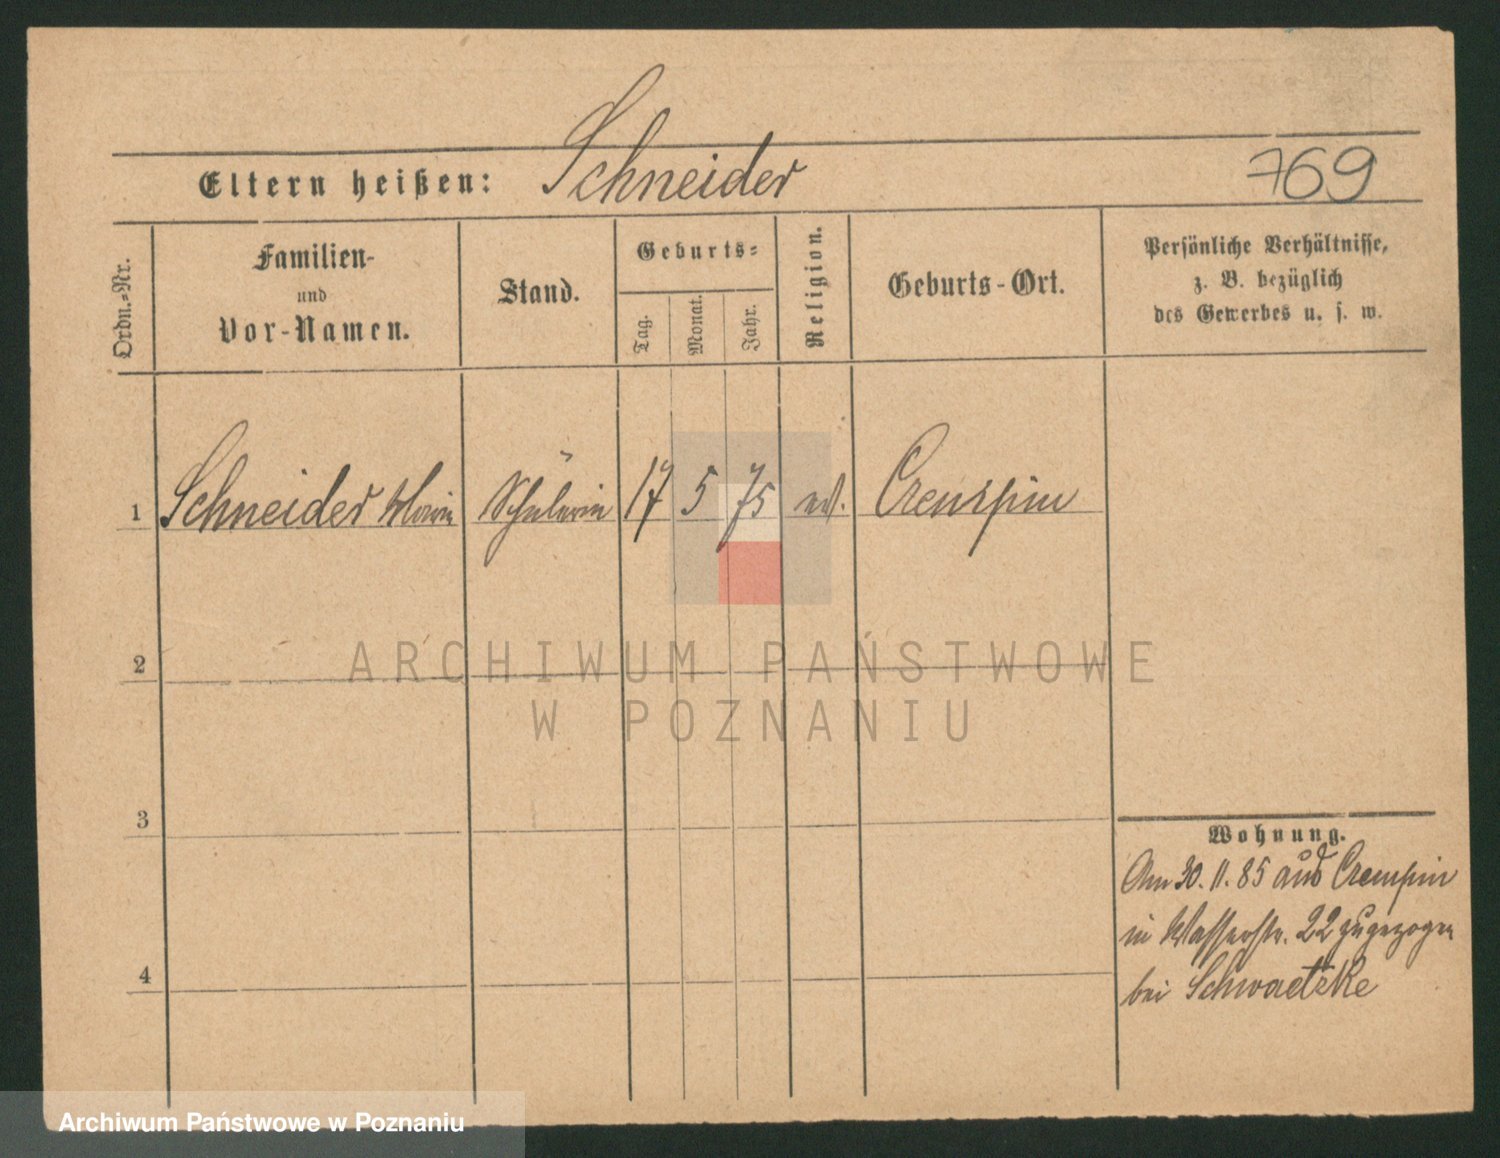 Eltern heißen: Schneider
769
Ordn.-Nr.
Familien-
und
Vor-Namen.
Stand.
Geburts-
Tag.
Monat.
Jahr.
Religion.
Geburts-Ort.
Persönliche Verhältnisse,
z. B. bezüglich
des Gewerbes u. s. w.
1 Schneider Marie Schülerin 17 5 75 ev.
2
3
4
Wohnung.
Am 30. 11. 85 aus
in Wasserstr. 22 zugezogen
bei Schwaetzke
ARCHIWUM PAŃSTWOWE
W POZNANIU
Archiwum Państwowe w Poznaniu